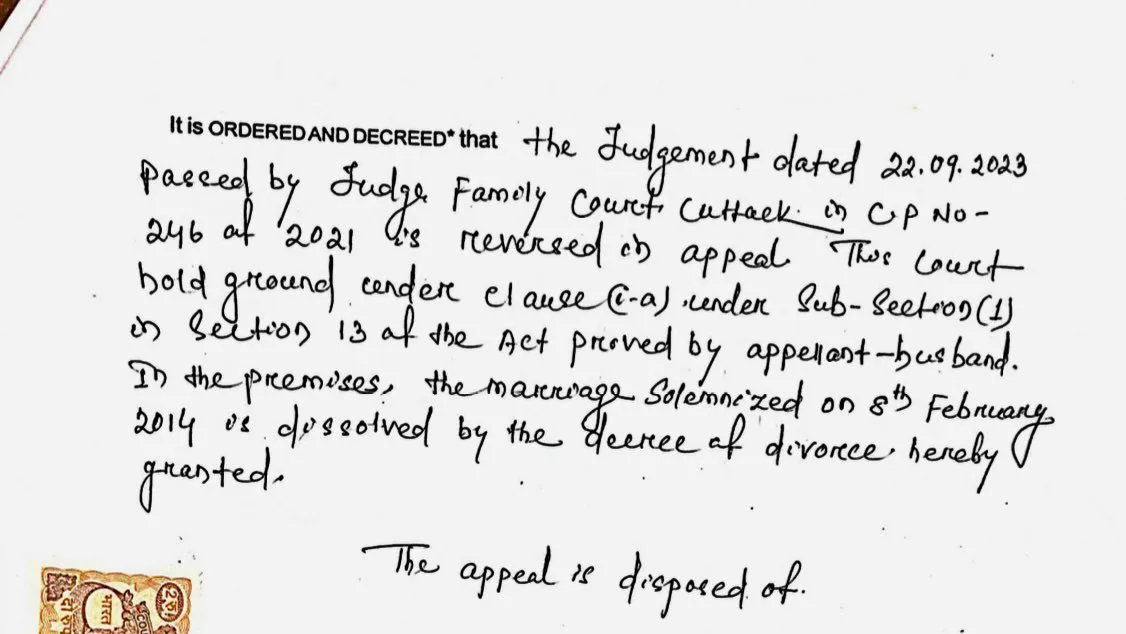 It is ORDERED AND DECREED* that the Judgement dated 22.09.2023
Passed by Judge Family Court, Cuttack. in C.P No-
246 of 2021 is reversed in appeal. This Court
hold ground under clause (i-a) under Sub-Section (1)
in Section 13 of the Act proved by appellant-husband.
In the premises, the marriage Solemnized on 8th February,
2014 is dissolved by the decree of divorce hereby
granted.
The appeal is disposed of.
भारत